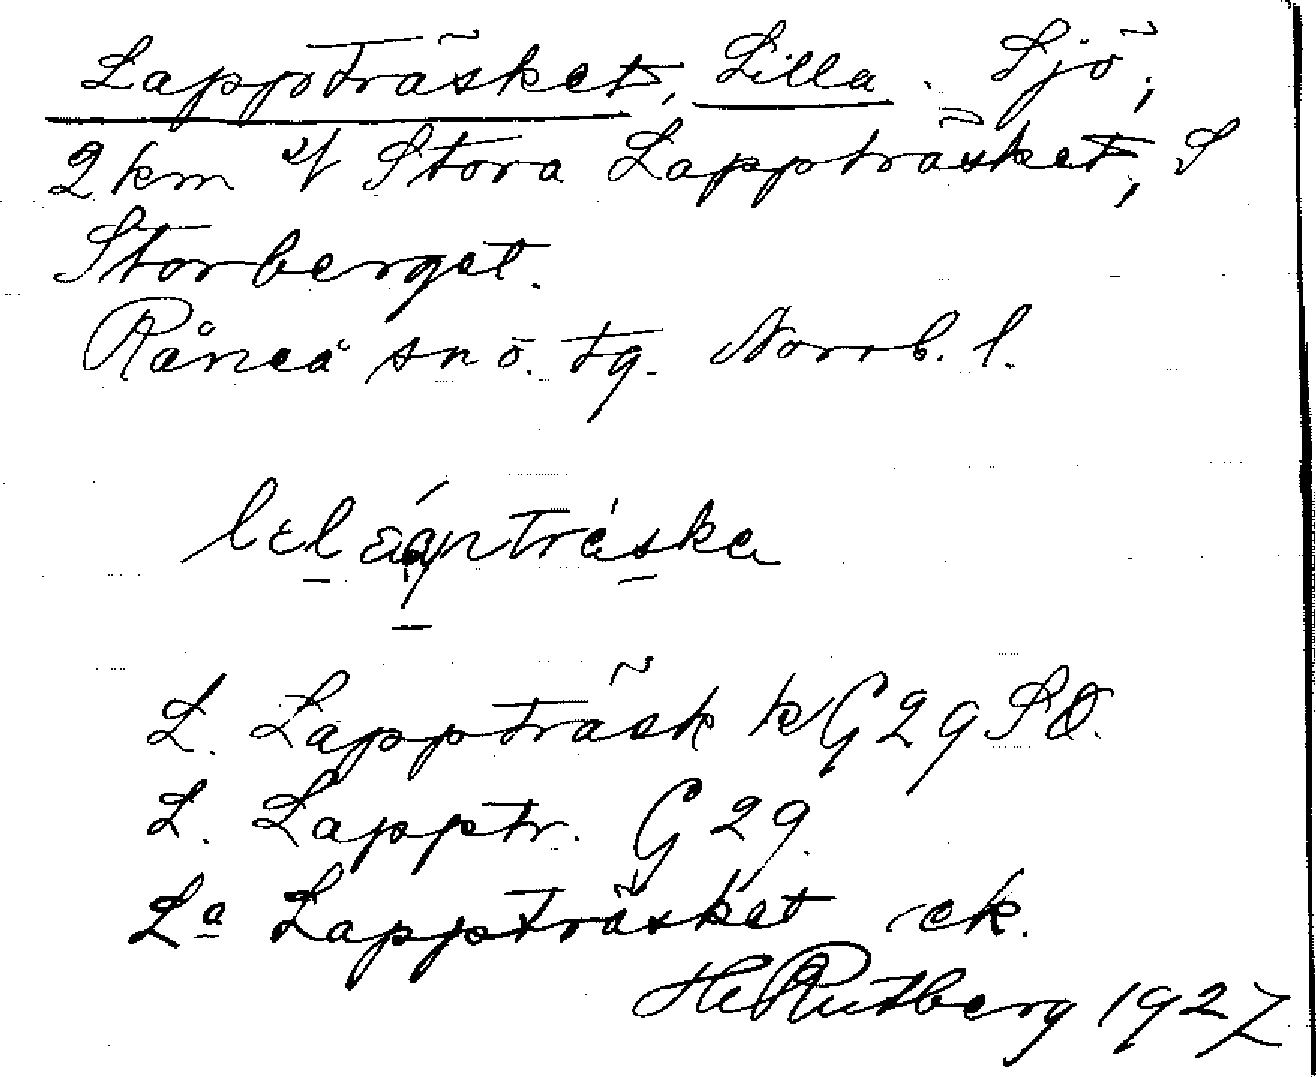 Lappträsket, Lilla. Sjö,
2 km V Stora Lappträsket, S
Storberget.
Råneå sn ö. tg. Norrb. l.
L. Lappträsk kG29SO.
L. Lapptr. G29.
La Lappträsket ek.
H. Rutberg 1927